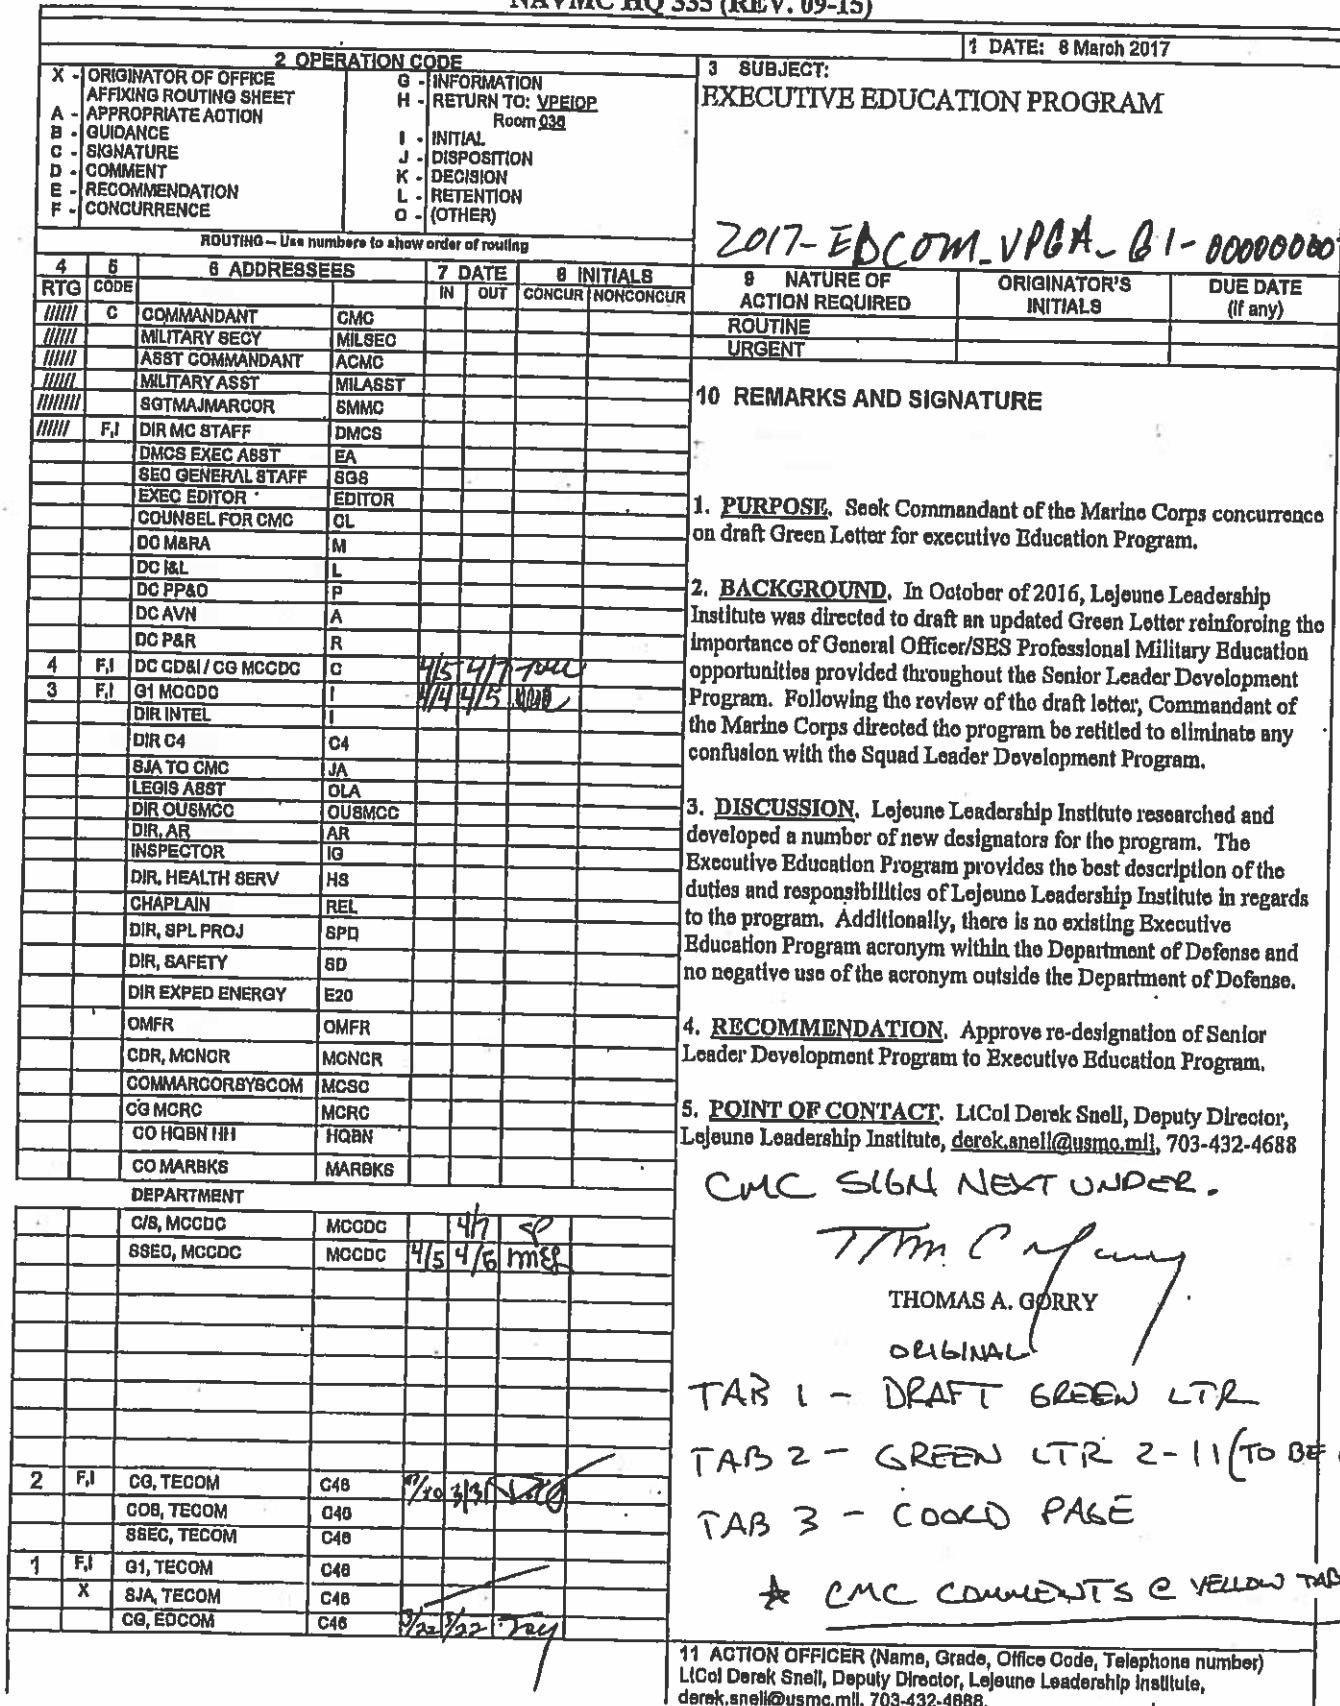 NAVMC HQ 335 (REV. 09-15)
1 DATE: 8 March 2017
2 OPERATION CODE
X - ORIGINATOR OF OFFICE
AFFIXING ROUTING SHEET
A - APPROPRIATE ACTION
B - GUIDANCE
C - SIGNATURE
D - COMMENT
E - RECOMMENDATION
F - CONCURRENCE
G - INFORMATION
H - RETURN TO: VPEIOP
Room 038
I - INITIAL
J - DISPOSITION
K - DECISION
L - RETENTION
O - (OTHER)
3 SUBJECT:
EXECUTIVE EDUCATION PROGRAM
2017-EDCOM_VPGA_G1-00000000
ROUTING – Use numbers to show order of routing
4 RTG 5 CODE 6 ADDRESSEES 7 DATE IN OUT 8 INITIALS CONCUR NONCONCUR
////// C COMMANDANT CMC
////// MILITARY SECY MILSEC
////// ASST COMMANDANT ACMC
////// MILITARY ASST MILASST
//////// SGTMAJMARCOR SMMC
////// F,I DIR MC STAFF DMCS
DMCS EXEC ASST EA
SEC GENERAL STAFF SGS
EXEC EDITOR EDITOR
COUNSEL FOR CMC CL
DC M&RA M
DC I&L L
DC PP&O P
DC AVN A
DC P&R R
4 F,I DC CD&I / CG MCCDC C 4/5 4/7
3 F,I G1 MCCDC I 4/4 4/5
DIR INTEL I
DIR C4 C4
SJA TO CMC JA
LEGIS ASST OLA
DIR OUSMCC OUSMCC
DIR, AR AR
INSPECTOR IG
DIR, HEALTH SERV HS
CHAPLAIN REL
DIR, SPL PROJ SPD
DIR, SAFETY SD
DIR EXPED ENERGY E20
OMFR OMFR
CDR, MCNCR MCNCR
COMMARCORSYSCOM MCSC
CG MCRC MCRC
CO HQBN HH HQBN
CO MARBKS MARBKS
DEPARTMENT
C/S, MCCDC MCCDC 4/7
SSEC, MCCDC MCCDC 4/5 4/6
2 F,I CG, TECOM C46 3/31
COS, TECOM C46
SSEC, TECOM C46
1 F,I G1, TECOM C46
X SJA, TECOM C46
CG, EDCOM C46 3/22 3/22
9 NATURE OF ACTION REQUIRED ORIGINATOR'S INITIALS DUE DATE (if any)
ROUTINE
URGENT
10 REMARKS AND SIGNATURE
1. PURPOSE. Seek Commandant of the Marine Corps concurrence
on draft Green Letter for executive Education Program.
2. BACKGROUND. In October of 2016, Lejeune Leadership
Institute was directed to draft an updated Green Letter reinforcing the
importance of General Officer/SES Professional Military Education
opportunities provided throughout the Senior Leader Development
Program. Following the review of the draft letter, Commandant of
the Marine Corps directed the program be retitled to eliminate any
confusion with the Squad Leader Development Program.
3. DISCUSSION. Lejeune Leadership Institute researched and
developed a number of new designators for the program. The
Executive Education Program provides the best description of the
duties and responsibilities of Lejeune Leadership Institute in regards
to the program. Additionally, there is no existing Executive
Education Program acronym within the Department of Defense and
no negative use of the acronym outside the Department of Defense.
4. RECOMMENDATION. Approve re-designation of Senior
Leader Development Program to Executive Education Program.
5. POINT OF CONTACT. LtCol Derek Snell, Deputy Director,
Lejeune Leadership Institute, derek.snell@usmc.mil, 703-432-4688
CMC SIGN NEXT UNDER.
THOMAS A. GORRY
ORIGINAL
TAB 1 - DRAFT GREEN LTR
TAB 2 - GREEN LTR 2-11 (TO BE
TAB 3 - COORD PAGE
* CMC COMMENTS @ YELLOW TAB
11 ACTION OFFICER (Name, Grade, Office Code, Telephone number)
LtCol Derek Snell, Deputy Director, Lejeune Leadership Institute,
derek.snell@usmc.mil, 703-432-4688.